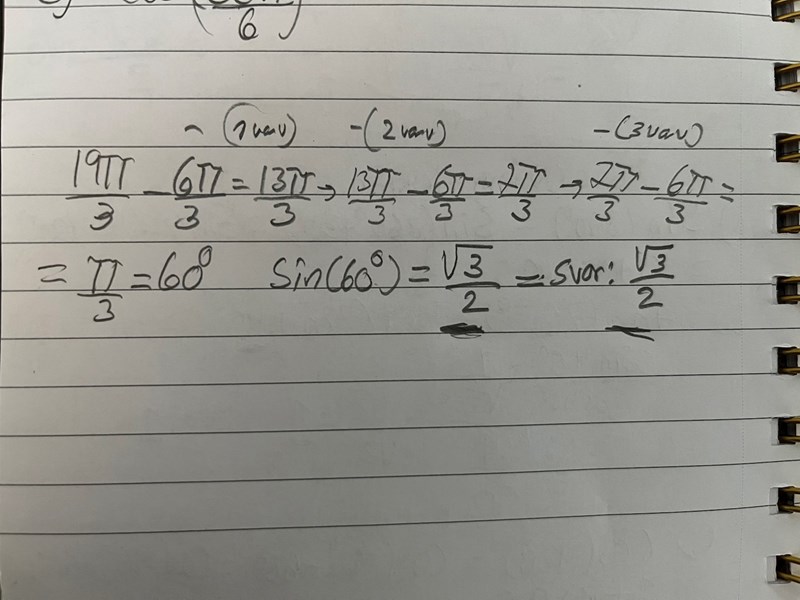 6
- (1 varv) - (2 varv) - (3 varv)
19π/3 - 6π/3 = 13π/3 → 13π/3 - 6π/3 = 7π/3 → 7π/3 - 6π/3 =
= π/3 = 60° sin(60°) = √3/2 = Svar: √3/2